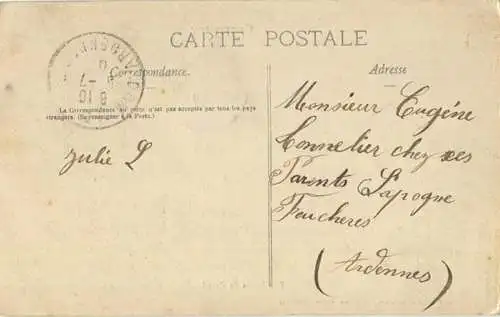 CARTE POSTALE
Correspondance.
La Correspondance au recto n'est pas acceptée par tous les pays
étrangers. (Se renseigner à la Poste.)
Julie L
Adresse
Monsieur Eugène
Tonnelier chez ses
Parents Lapogne
Feucheres
(Ardennes)